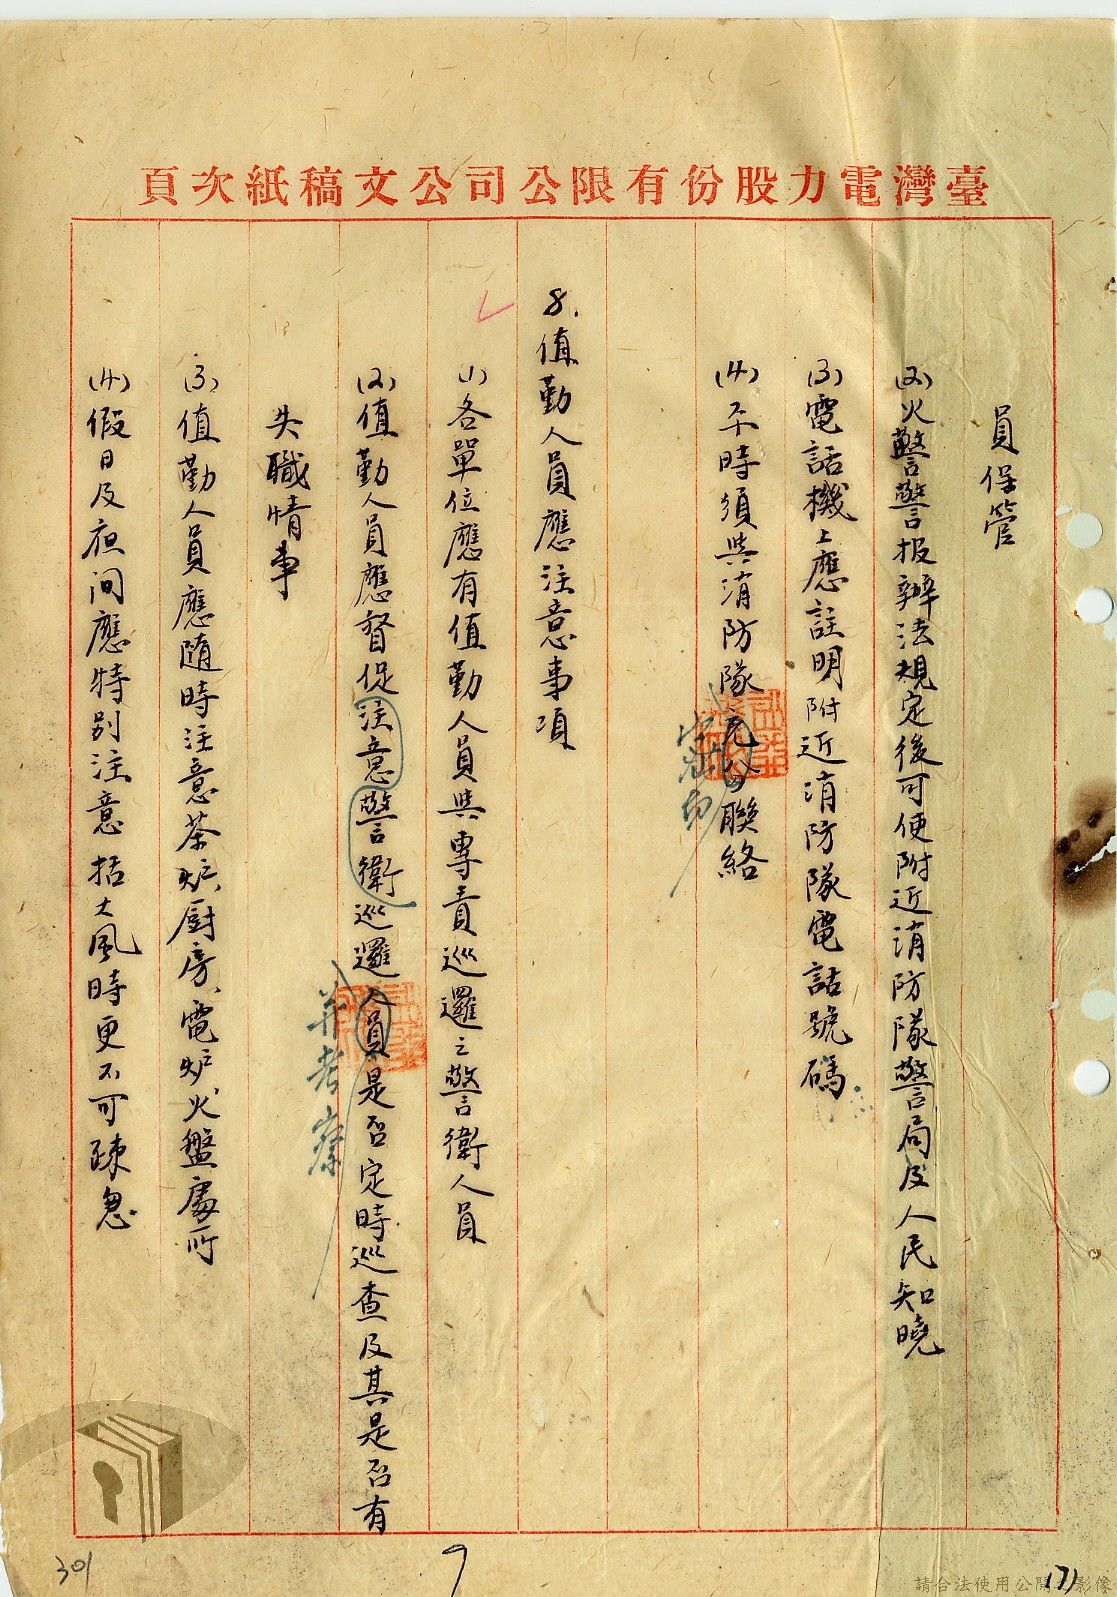 臺灣電力股份有限公司公文稿紙次頁
員保管
(2)火警警报辦法規定後可使附近消防隊警局及人民知曉
(3)電話機上應註明附近消防隊電話號碼
(4)平時須與消防隊充分聯絡
密切
8.值勤人員應注意事項
(1)各單位應有值勤人員與專責巡邏之警衛人員
(2)值勤人員應督促注意警衛巡邏人員是否定時巡查及其是否有
并考察
失職情事
(3)值勤人員應随時注意茶炉、厨房、電炉、火盤處所
(4)假日及夜间應特别注意括大風時更不可疎忽
301
7
請合法使用公開之影像